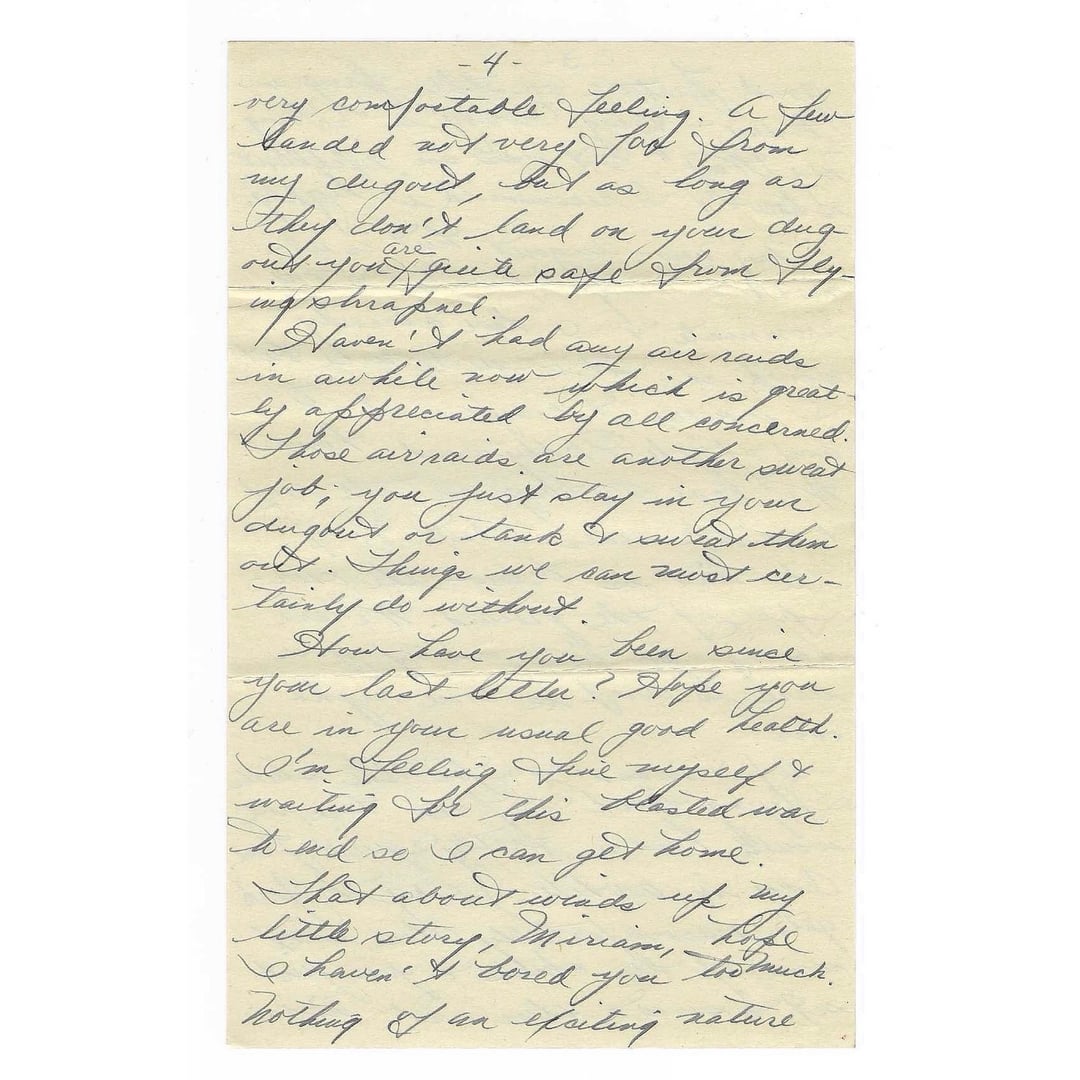 - 4 -
very comfortable feeling. A few
landed not very far from
my dugout, but as long as
they don't land on your dug-
out you are quite safe from fly-
ing shrapnel.
Haven't had any air raids
in awhile now which is great-
ly appreciated by all concerned.
Those air raids are another sweat
job; you just stay in your
dugout or tank & sweat them
out. Things we can most cer-
tainly do without.
How have you been since
your last letter? Hope you
are in your usual good health.
I'm feeling fine myself &
waiting for this blasted war
to end so I can get home.
That about winds up my
little story, Miriam, hope
I haven't bored you too much.
Nothing of an exciting nature